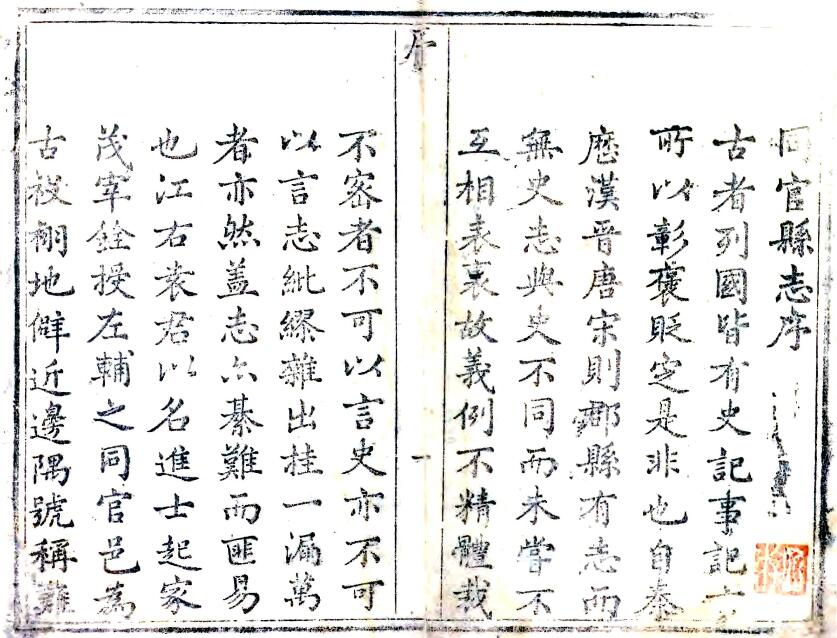 同官縣志序
古者列國皆有史記事記
所以彰褒貶定是非也自秦
歷漢晉唐宋則郡縣有志而
無史志與史不同而未嘗不
互相表裏故義例不精體裁
序
一
不審者不可以言史亦不可
以言志紕繆雜出挂一漏萬
者亦然盖志亦綦難而匪易
也江右袁君以名進士起家
茂宰銓授左輔之同官邑為
古祋栩地僻近邊隅號稱難